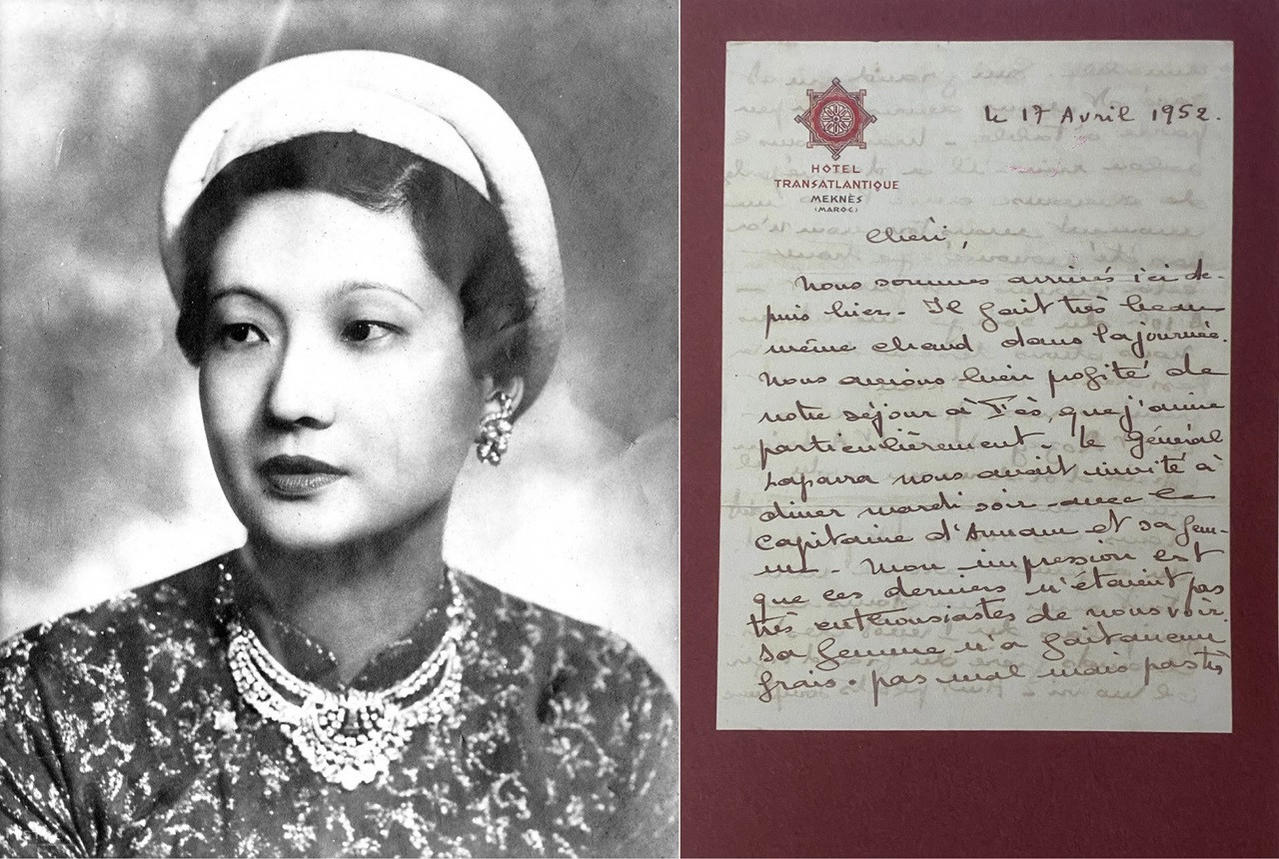 HÔTEL
TRANSATLANTIQUE
MEKNÈS
(MAROC)
le 17 Avril 1952.
Chéri,
Nous sommes arrivés ici de-
puis hier - Il fait très beau
même chaud dans la journée.
Nous avions bien profité de
notre séjour à Fès, que j'aime
particulièrement - le Général
Laparra nous avait invité à
dîner mardi soir avec le
capitaine d'Annam et sa fem-
me - Mon impression est
que ces derniers n'étaient pas
très enthousiastes de nous voir.
sa femme n'a fait aucun
frais. pas mal mais pas très